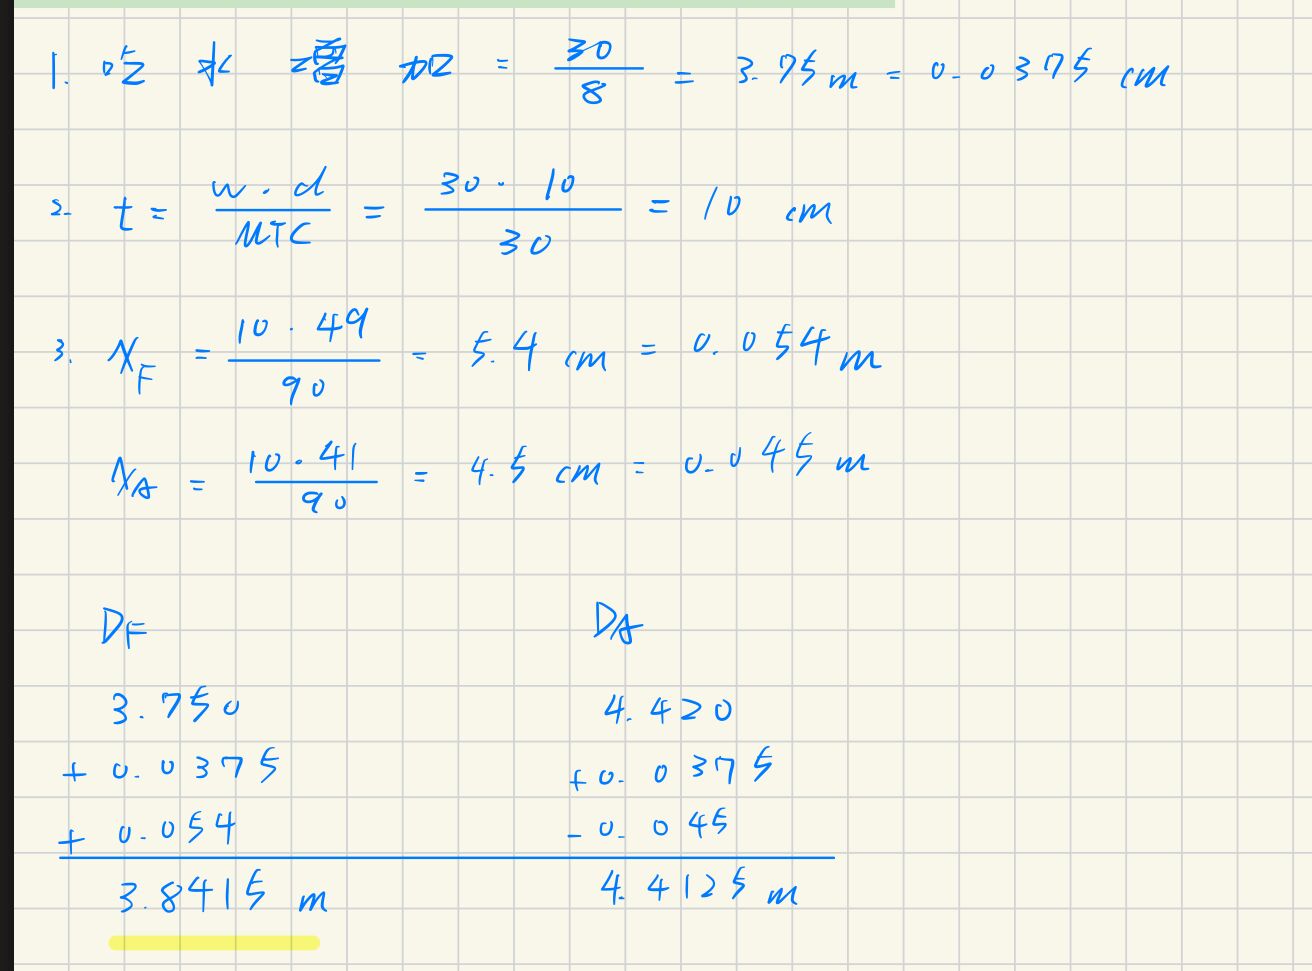 1. 吃水增加 = 30/8 = 3.75 m = 0.0375 cm
2. t = w·d/MTC = 30·10/30 = 10 cm
3. X_F = 10·49/90 = 5.4 cm = 0.054 m
X_A = 10·41/90 = 4.5 cm = 0.045 m
D_F D_A
3.750 4.420
+ 0.0375 +0.0375
+ 0.054 -0.045
3.8415 m 4.4125 m